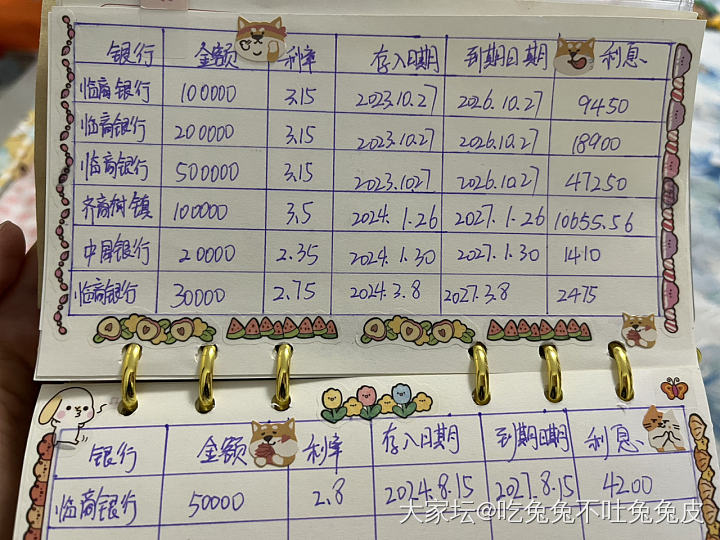 银行 金额 利率 存入日期 到期日期 利息
临商银行 100000 3.15 2023.10.27 2026.10.27 9450
临商银行 200000 3.15 2023.10.27 2026.10.27 18900
临商银行 500000 3.15 2023.10.27 2026.10.27 47250
齐商村镇 100000 3.5 2024.1.26 2027.1.26 10655.56
中国银行 20000 2.35 2024.1.30 2027.1.30 1410
临商银行 30000 2.75 2024.3.8 2027.3.8 2475
银行 金额 利率 存入日期 到期日期 利息
临商银行 50000 2.8 2024.8.15 2027.8.15 4200
大家坛@吃兔兔不吐兔兔皮